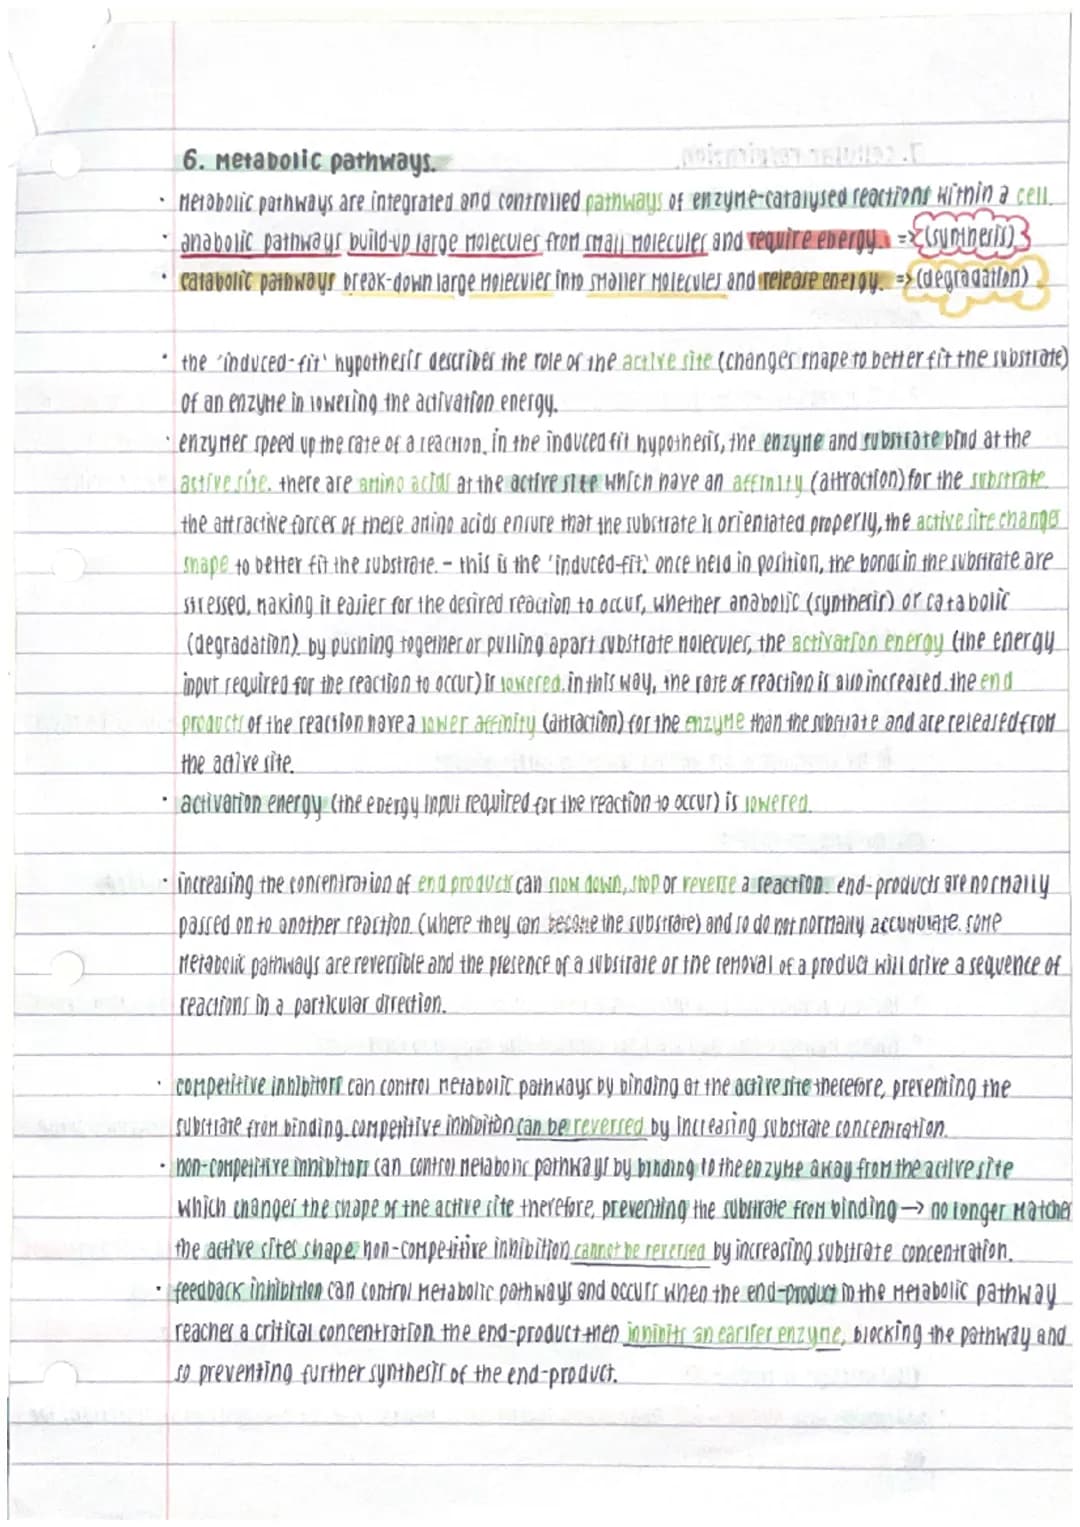 6. Metabolic pathways.
· Metabolic pathways are integrated and controlled pathways of enzyme-catalysed reactions within a cell.
· anabolic pathways build-up large molecules from small molecules and require energy. => (synthesis)
· catabolic pathways break-down large molecules into smaller molecules and release energy. => (degradation)
· the 'induced-fit' hypothesis describes the role of the active site (changes shape to better fit the substrate)
of an enzyme in lowering the activation energy.
· enzymes speed up the rate of a reaction. in the induced fit hypothesis, the enzyme and substrate bind at the
active site. there are amino acids at the active site which have an affinity (attraction) for the substrate.
the attractive forces of these amino acids ensure that the substrate is orientated properly, the active site changes
shape to better fit the substrate. - this is the 'induced-fit'. once held in position, the bonds in the substrate are
stressed, making it easier for the desired reaction to occur, whether anabolic (synthesis) or catabolic
(degradation). by pushing together or pulling apart substrate molecules, the activation energy (the energy
input required for the reaction to occur) is lowered. in this way, the rate of reaction is also increased. the end
products of the reaction have a lower affinity (attraction) for the enzyme than the substrate and are released from
the active site.
· activation energy (the energy input required for the reaction to occur) is lowered.
· increasing the concentration of end products can slow down, stop or reverse a reaction. end-products are normally
passed on to another reaction (where they can become the substrate) and so do not normally accumulate. some
metabolic pathways are reversible and the presence of a substrate or the removal of a product will drive a sequence of
reactions in a particular direction.
· competitive inhibitors can control metabolic pathways by binding at the active site therefore, preventing the
substrate from binding. competitive inhibition can be reversed by increasing substrate concentration.
· non-competitive inhibitors can control metabolic pathways by binding to the enzyme away from the active site
which changes the shape of the active site therefore, preventing the substrate from binding → no longer matches
the active sites shape. non-competitive inhibition cannot be reversed by increasing substrate concentration.
· feedback inhibition can control metabolic pathways and occurs when the end-product in the metabolic pathway
reaches a critical concentration. the end-product then inhibits an earlier enzyme, blocking the pathway and
so preventing further synthesis of the end-product.